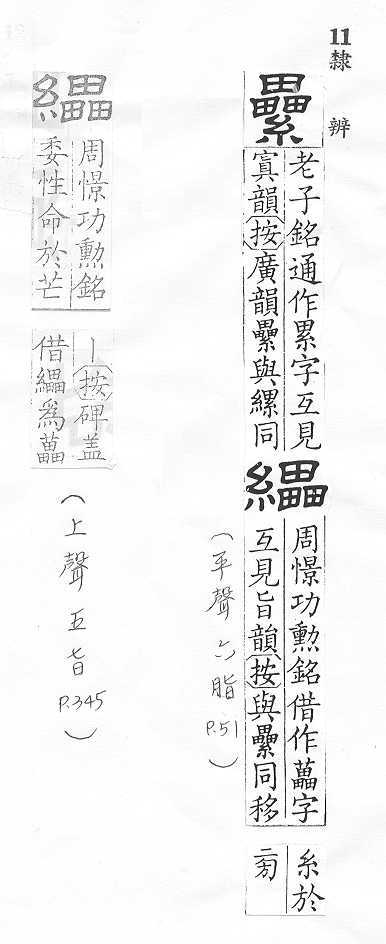 11隸辨
纍
老子銘通作累字互見
寘韻按廣韻纍與縲同
䌰
周憬功勲銘借作藟字
互見旨韻按與纍同移
糸於
㫄
(平聲六脂 P.51)
䌰
周憬功勲銘
委性命於芒
｜按碑盖
借䌰爲藟
(上聲五旨 P.345)